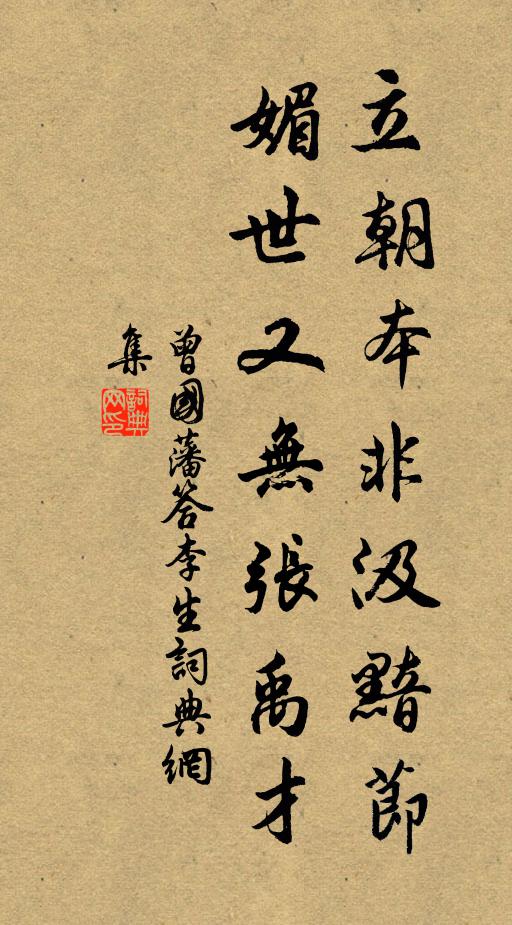 立朝本非汲黯節
媚世又無張禹才
曾國藩答李生詞典網
集
詞典網印